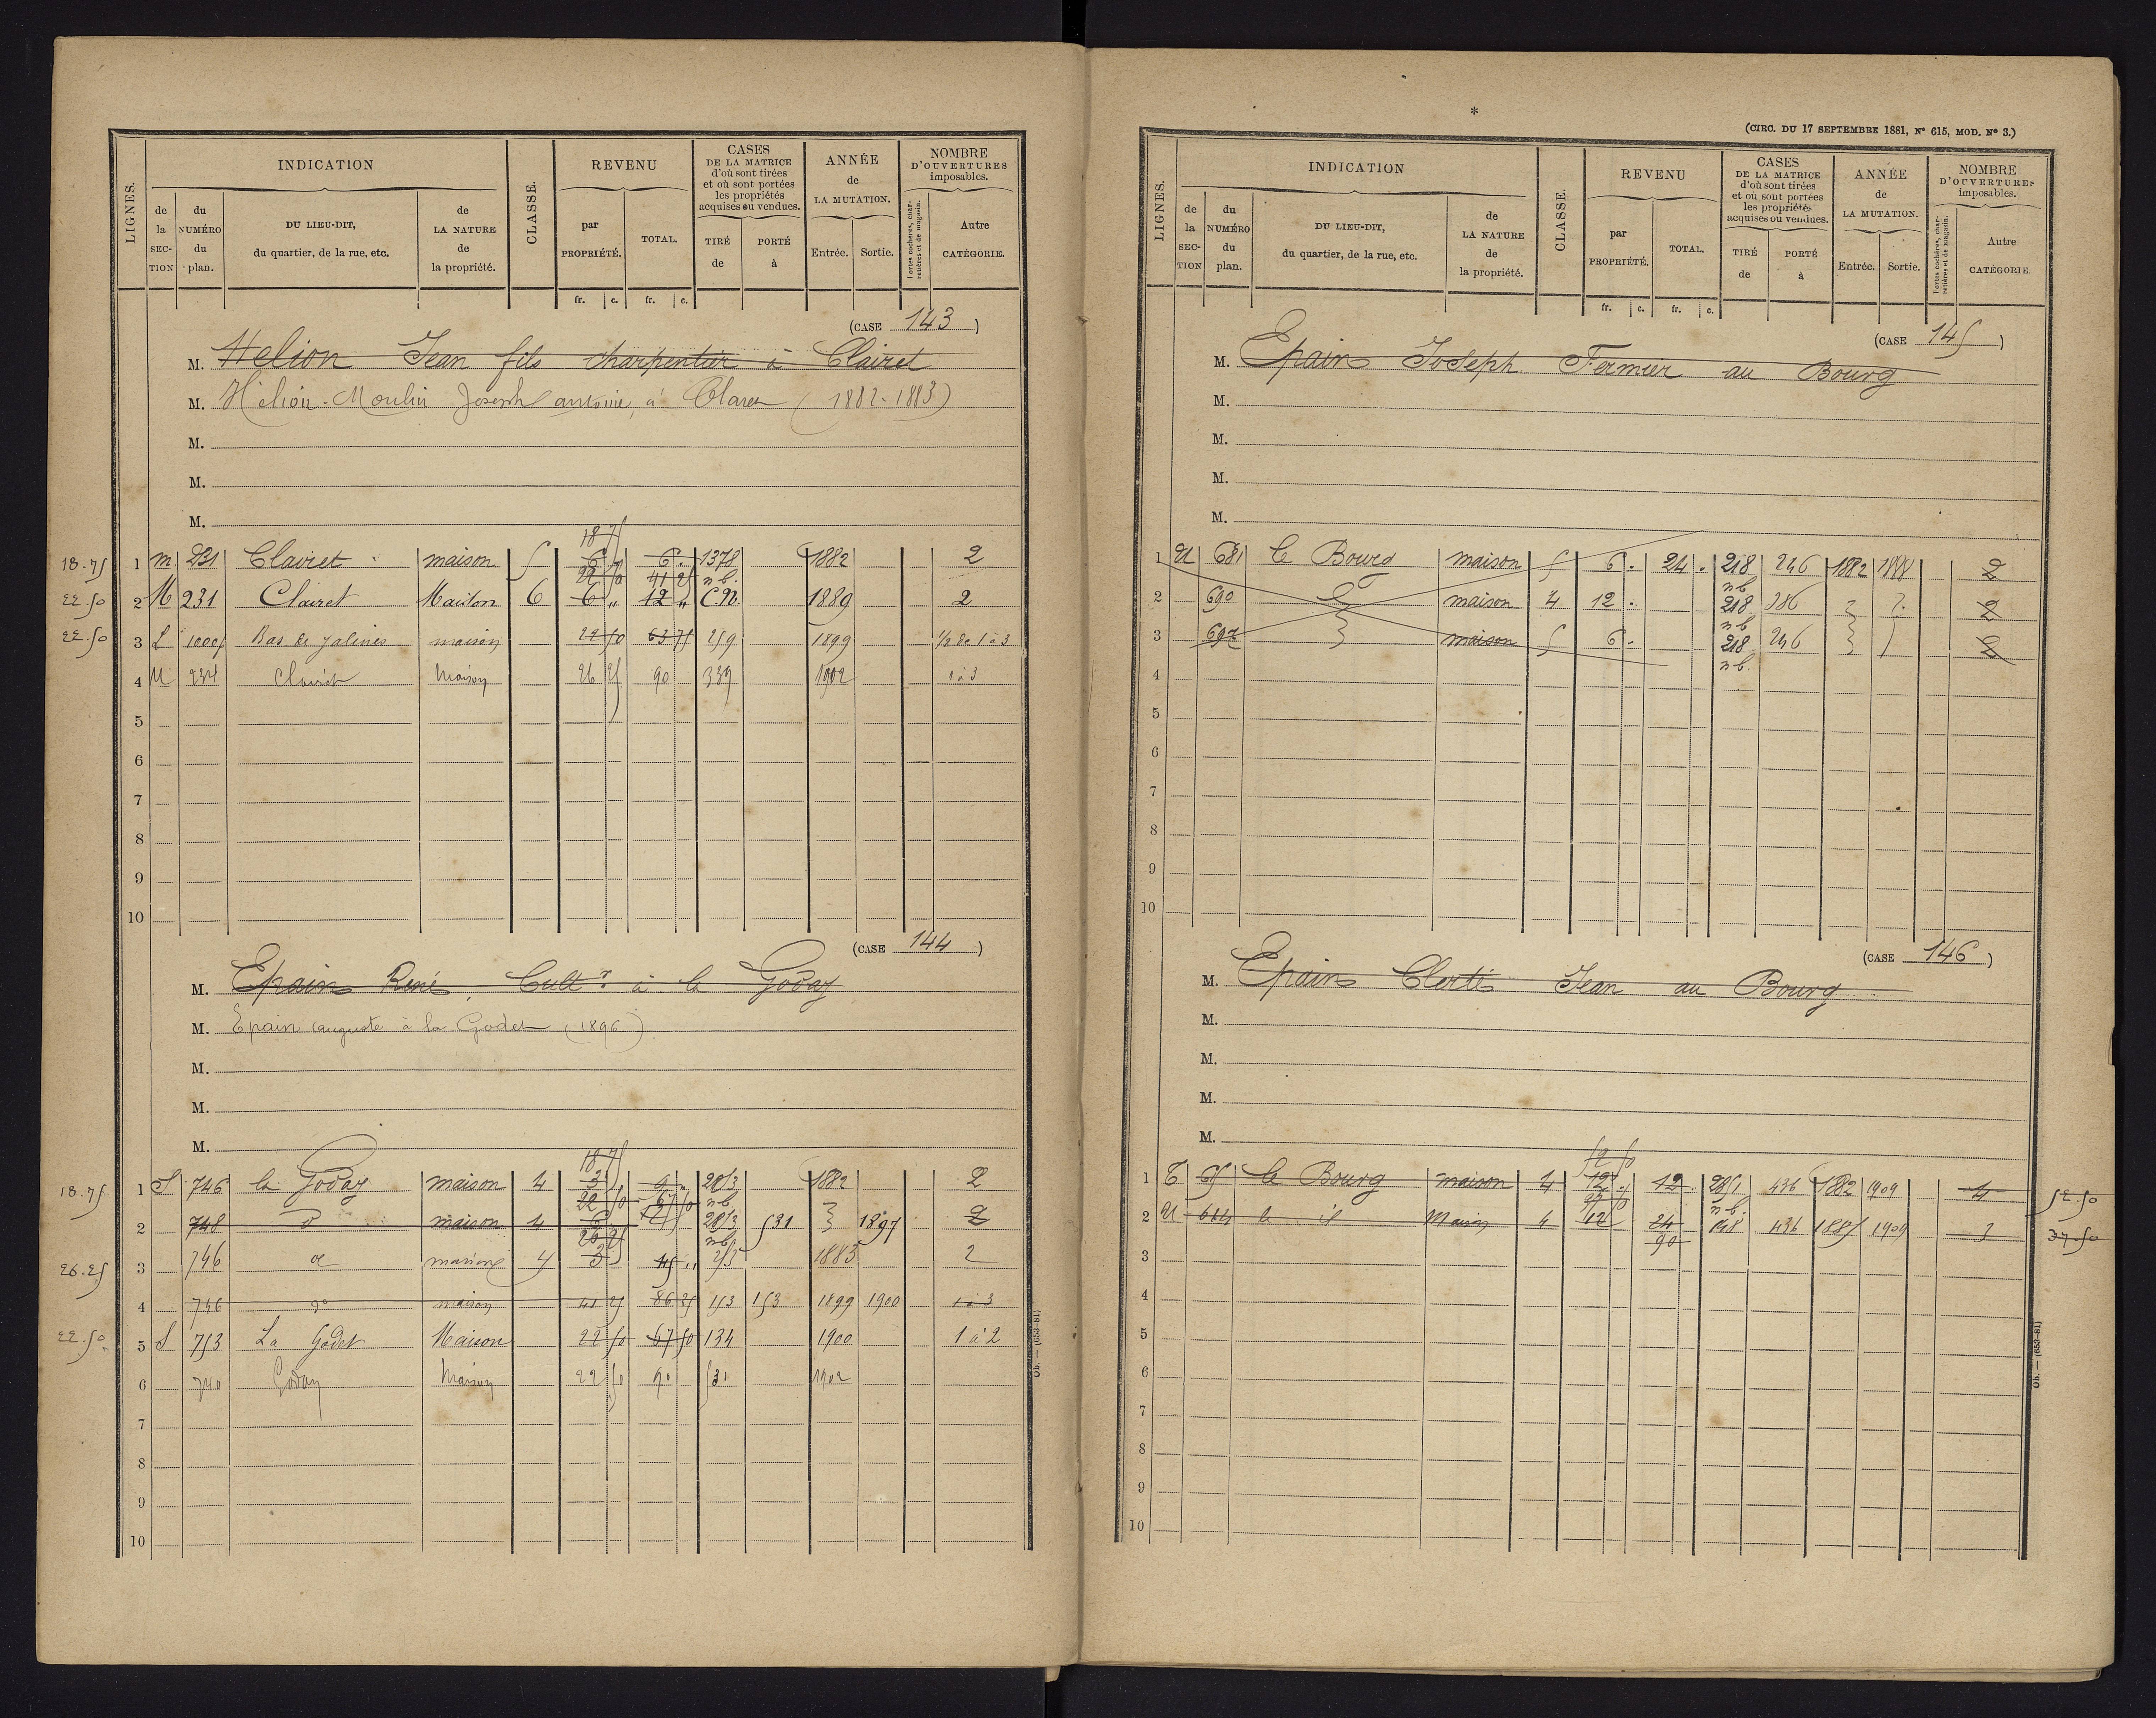 INDICATION
REVENU
CASES
DE LA MATRICE
d'où sont tirées
et où sont portées
les propriétés
acquises ou vendues.
ANNÉE
de
LA MUTATION.
NOMBRE
D'OUVERTURES
imposables.
LIGNES.
de la SECTION
du NUMÉRO du plan.
DU LIEU-DIT,
du quartier, de la rue, etc.
de LA NATURE de la propriété.
CLASSE.
par PROPRIÉTÉ.
TOTAL.
TIRÉ de
PORTÉ à
Entrée.
Sortie.
Portes cochères, charretières et de magasin.
Autre CATÉGORIE.
fr. c. fr. c.
(CASE 143)
M. Helion Jean fils charpentier à Clairet
M. Hélion-Moulin Joseph antoine, à Claret (1882-1883)
M.
M.
M.
18 75
18.75 1 m 231 Clairet maison 5 6 . 6 . 1378 1882 2
22 50 41 25 n b.
22.50 2 M 231 Clairet Maison 6 6 " 12 " C.N. 1889 2
22.50 3 L 1000 Bas de Jalines maison 22 50 63 75 259 1899 1/2 de 1 à 3
4 M 234 Clairet Maison 26 25 90 339 1902 1 à 3
5
6
7
8
9
10
(CASE 144)
M. Epain René, Cultr. à la Goday
M. Epain auguste à la Godet (1896)
M.
M.
M.
18 75
18.75 1 S 746 la Goday maison 4 3 9 . 2013 1882 2
22 50 67 50 n b
2 748 d° maison 4 6 2013 531 1897 2
26 25 n b
26.25 3 746 d° maison 4 3 45 .. 253 1883 2
4 746 d° maison 41 25 86 25 153 153 1899 1900 1 à 3
22.50 5 S 753 La Godet Maison 22 50 67 50 134 1900 1 à 2
6 740 Goday Maison 22 50 90 531 1902
7
8
9
10
Ob. — (653-81)
*
(CIRC. DU 17 SEPTEMBRE 1881, N° 615, MOD. N° 3.)
INDICATION
REVENU
CASES
DE LA MATRICE
d'où sont tirées
et où sont portées
les propriétés
acquises ou vendues.
ANNÉE
de
LA MUTATION.
NOMBRE
D'OUVERTURES
imposables.
LIGNES.
de la SECTION
du NUMÉRO du plan.
DU LIEU-DIT,
du quartier, de la rue, etc.
de LA NATURE de la propriété.
CLASSE.
par PROPRIÉTÉ.
TOTAL.
TIRÉ de
PORTÉ à
Entrée.
Sortie.
Portes cochères, charretières et de magasin.
Autre CATÉGORIE.
fr. c. fr. c.
(CASE 145)
M. Epain Joseph Fermier au Bourg
M.
M.
M.
M.
1 U 681 le Bourg maison 5 6 . 24 . 218 246 1882 1888 2
n b
2 690 maison 4 12 . 218 386 2
n b
3 697 maison 5 6 . 218 246 2
n b.
4
5
6
7
8
9
10
(CASE 146)
M. Epain Clerté Jean au Bourg
M.
M.
M.
M.
52 50
1 T 65 le Bourg maison 4 12 . 12 . 2851 436 1882 1909 4 52.50
37 50 n b.
2 U 664 le id Maison 4 12 24 436 1885 1909 3 37.50
90
3
4
5
6
7
8
9
10
Ob. — (653-81)